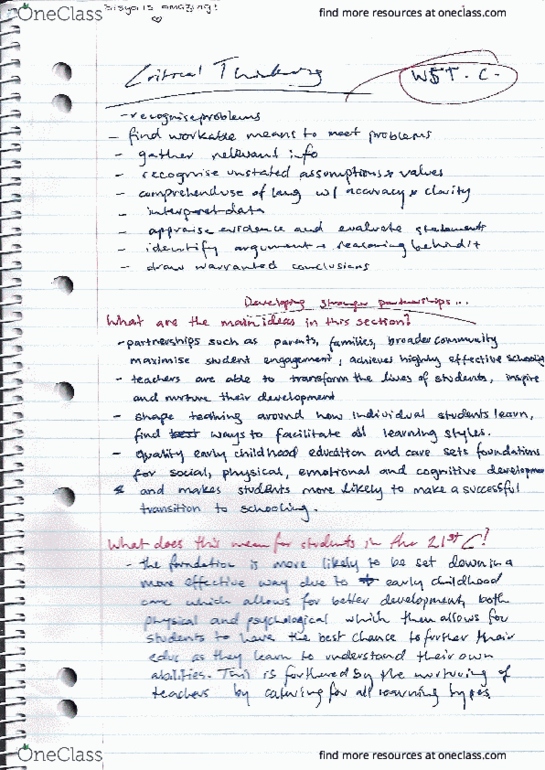 OneClass
find more resources at oneclass.com
is amazing!
Critical Thinking
WST.C.
- recognise problems
- find workable means to meet problems
- gather relevant info
- recognise unstated assumptions & values
- comprehend use of lang w/ accuracy & clarity
- interpret data
- appraise evidence and evaluate statements
- identify argument + reasoning behind it
- draw warranted conclusions
Developing stronger partnerships...
What are the main ideas in this section?
- partnerships such as parents, families, broader community
maximise student engagement, achieves highly effective schooling
- teachers are able to transform the lives of students, inspire
and nurture their development
- shape teaching around how individual students learn,
find best ways to facilitate all learning styles.
- quality early childhood education and care sets foundations
for social, physical, emotional and cognitive developme
and makes students more likely to make a successful
transition to schooling.
What does this mean for students in the 21st C?
- the foundation is more likely to be set down in a
more effective way due to early childhood
care which allows for better development, both
physical and psychological which then allows for
students to have the best chance to further their
educ as they learn to understand their own
abilities. This is furthered by the nurturing of
teachers by catering for all learning types
OneClass
find more resources at oneclass.com